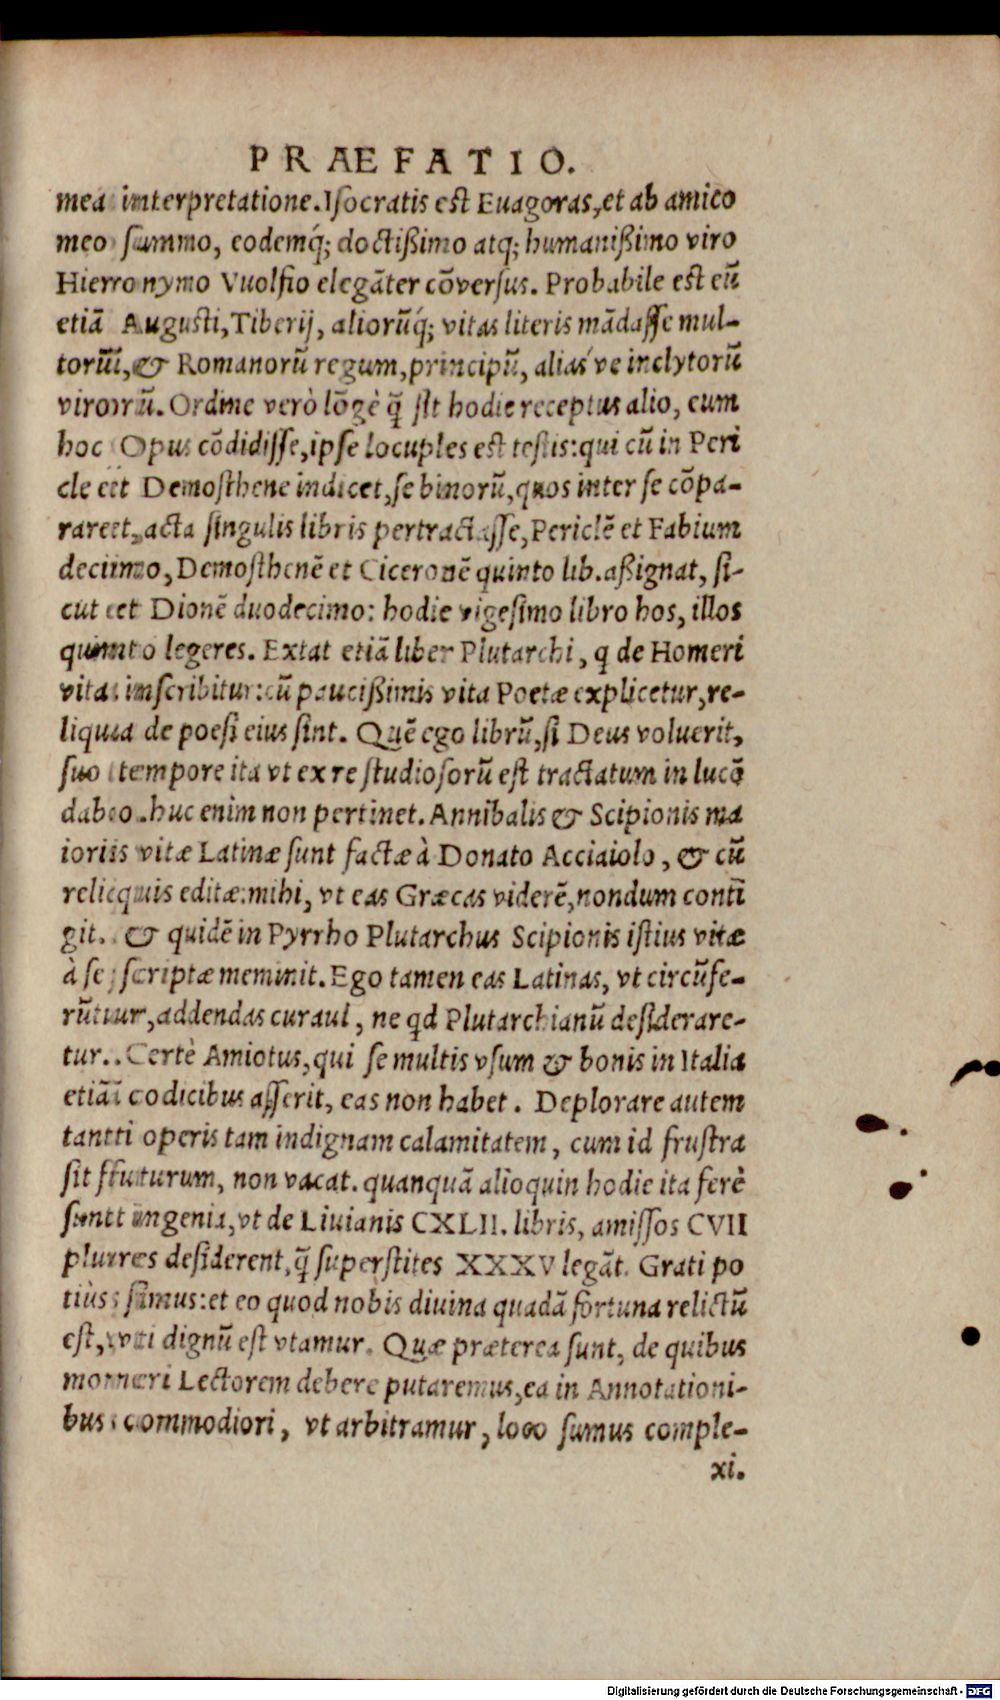 PRAEFATIO.
mea interpretatione. Isocratis est Euagoras, et ab amico
meo summo, eodemq́; doctißimo atq; humanißimo viro
Hieronymo Vuolfio elegāter cōversus. Probabile est eū
etiā Augusti, Tiberij, aliorūq́; vitas literis mādasse mul-
torū, & Romanorū regum, principū, alias ve inclytorū
virorū. Ordine verò lōgè q̄ sit hodie receptus alio, eum
hoc Opus cōdidisse, ipse locuples est testis: qui cū in Peri
cle et Demosthene indicet, se binorū, quos inter se cōpa-
raret, acta singulis libris pertractasse, Periclē et Fabium
decimo, Demosthenē et Ciceronē quinto lib. aßignat, si-
cut et Dionē duodecimo: hodie vigesimo libro hos, illos
quinto legeres. Extat etiā liber Plutarchi, q de Homeri
vita inscribitur: cū paucißimis vita Poetæ explicetur, re-
liqua de poesi eius sint. Quē ego librū, si Deus voluerit,
suo tempore ita vt ex re studiosorū est tractatum in lucē
dabo. huc enim non pertinet. Annibalis & Scipionis ma
ioris vitæ Latinæ sunt factæ à Donato Acciaiolo, & cū
reliquis editæ: mihi, vt eas Græcas viderē, nondum conti
git. & quidē in Pyrrho Plutarchus Scipionis istius vitæ
à se scriptæ meminit. Ego tamen eas Latinas, vt circūfe-
rūtur, addendas curaui, ne qd Plutarchianū desiderare-
tur. Certè Amiotus, qui se multis vsum & bonis in Italia
etiā codicibus asserit, eas non habet. Deplorare autem
tanti operis tam indignam calamitatem, cum id frustra
sit futurum, non vacat. quanquā alioquin hodie ita ferè
sunt ingenia, vt de Liuianis CXLII. libris, amissos CVII
plures desiderent, q̄ superstites XXXV legāt. Grati po
tiùs simus: et eo quod nobis diuina quadā fortuna relictū
est, vti dignū est vtamur. Quæ præterea sunt, de quibus
moneri Lectorem debere putaremus, ea in Annotationi-
bus commodiori, vt arbitramur, loco sumus comple-
xi.
Digitalisierung gefördert durch die Deutsche Forschungsgemeinschaft - DFG